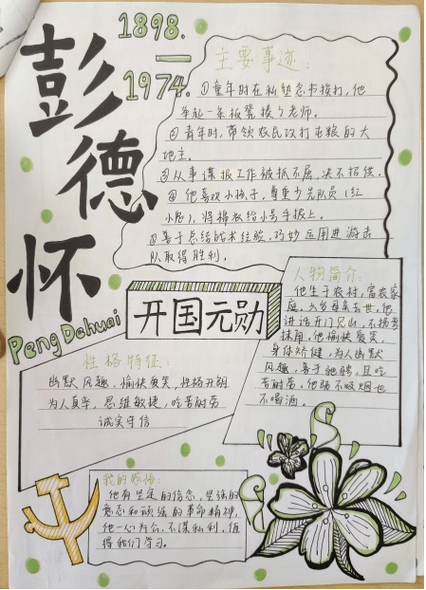 彭德怀
1898.
—
1974.
主要事迹:
①童年时在私塾念书挨打,他
举起一条板凳揍了老师。
②青年时,带领农民攻打屯粮的大
地主。
③从事谍报工作被抓不屈,决不招供。
④他喜欢小孩子,尊重少先队员(红
小鬼),将棉衣给小号手披上。
⑤善于总结战术经验,巧妙运用进游击
队取得胜利。
开国元勋
Peng Dehuai
人物简介:
他生于农村,富农家
庭,八岁母亲去世,他
讲话开门见山,不拐弯
抹角,他愉快爱笑,
身体矫健,为人幽默
风趣,善于驰骋,且吃
苦耐劳,他既不吸烟也
不喝酒。
性格特征:
幽默风趣,愉快爱笑,性格开朗
为人真率,思维敏捷,吃苦耐劳
诚实守信
我的感悟:
他有坚定的信念,坚强的
意志和顽强的革命精神,
他一心为公,不谋私利,值
得我们学习。